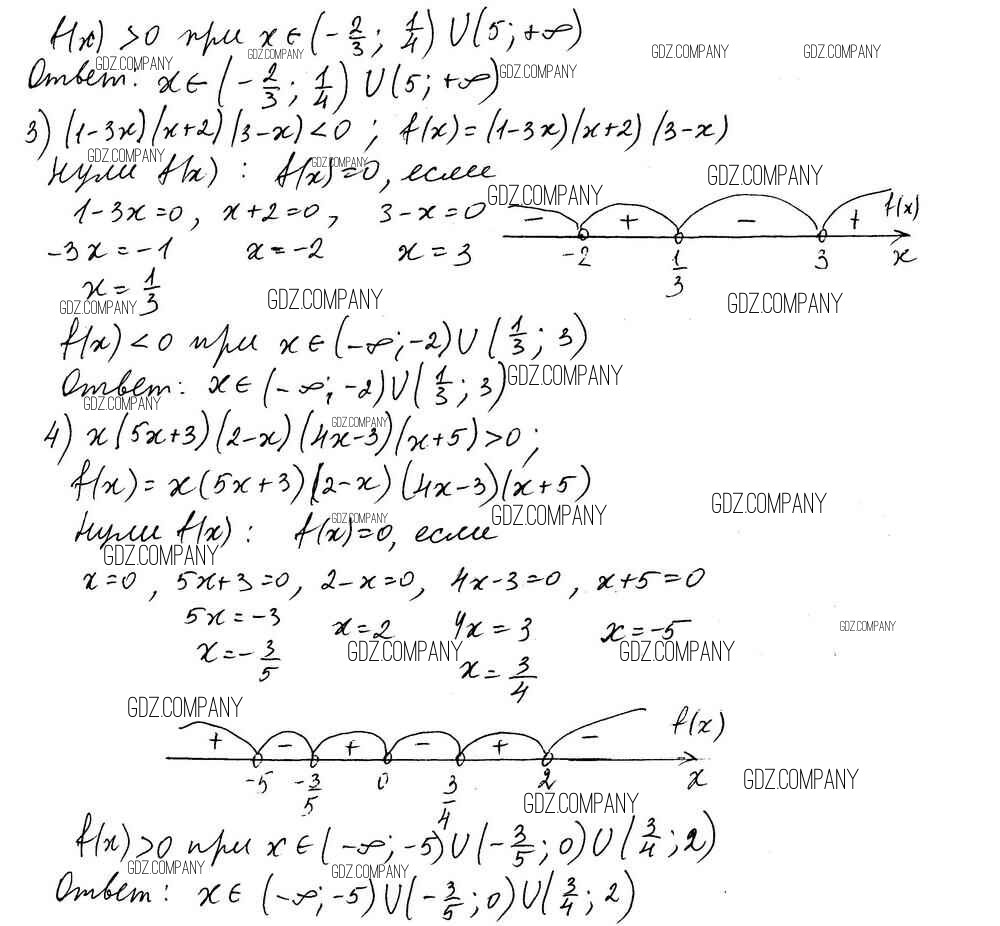 f(x) >0 при x∈(-2/3; 1/4) U(5;+∞)
GDZ.COMPANY GDZ.COMPANY GDZ.COMPANY GDZ.COMPANY GDZ.COMPANY
Ответ: x∈(-2/3; 1/4) U(5;+∞)
3) (1-3x)(x+2)(3-x)<0; f(x)=(1-3x)(x+2)(3-x)
GDZ.COMPANY GDZ.COMPANY
Нули f(x): f(x)=0, если
GDZ.COMPANY GDZ.COMPANY
1-3x=0, x+2=0, 3-x=0
- + - + f(x)
-3x=-1 x=-2 x=3
-2 1/3 3 x
x=1/3
GDZ.COMPANY GDZ.COMPANY GDZ.COMPANY
f(x)<0 при x∈(-∞;-2)U(1/3; 3)
Ответ: x∈(-∞;-2)U(1/3; 3)
GDZ.COMPANY
GDZ.COMPANY GDZ.COMPANY
4) x(5x+3)(2-x)(4x-3)(x+5)>0;
f(x)=x(5x+3)(2-x)(4x-3)(x+5)
GDZ.COMPANY GDZ.COMPANY GDZ.COMPANY
Нули f(x): f(x)=0, если
GDZ.COMPANY
x=0, 5x+3=0, 2-x=0, 4x-3=0, x+5=0
5x=-3 x=2 4x=3 x=-5
GDZ.COMPANY
x=-3/5 x=3/4
GDZ.COMPANY GDZ.COMPANY
GDZ.COMPANY
+ - + - + - f(x)
-5 -3/5 0 3/4 2 x
GDZ.COMPANY
GDZ.COMPANY
f(x)>0 при x∈(-∞;-5)U(-3/5;0)U(3/4;2)
GDZ.COMPANY GDZ.COMPANY
Ответ: x∈(-∞;-5)U(-3/5;0)U(3/4;2)